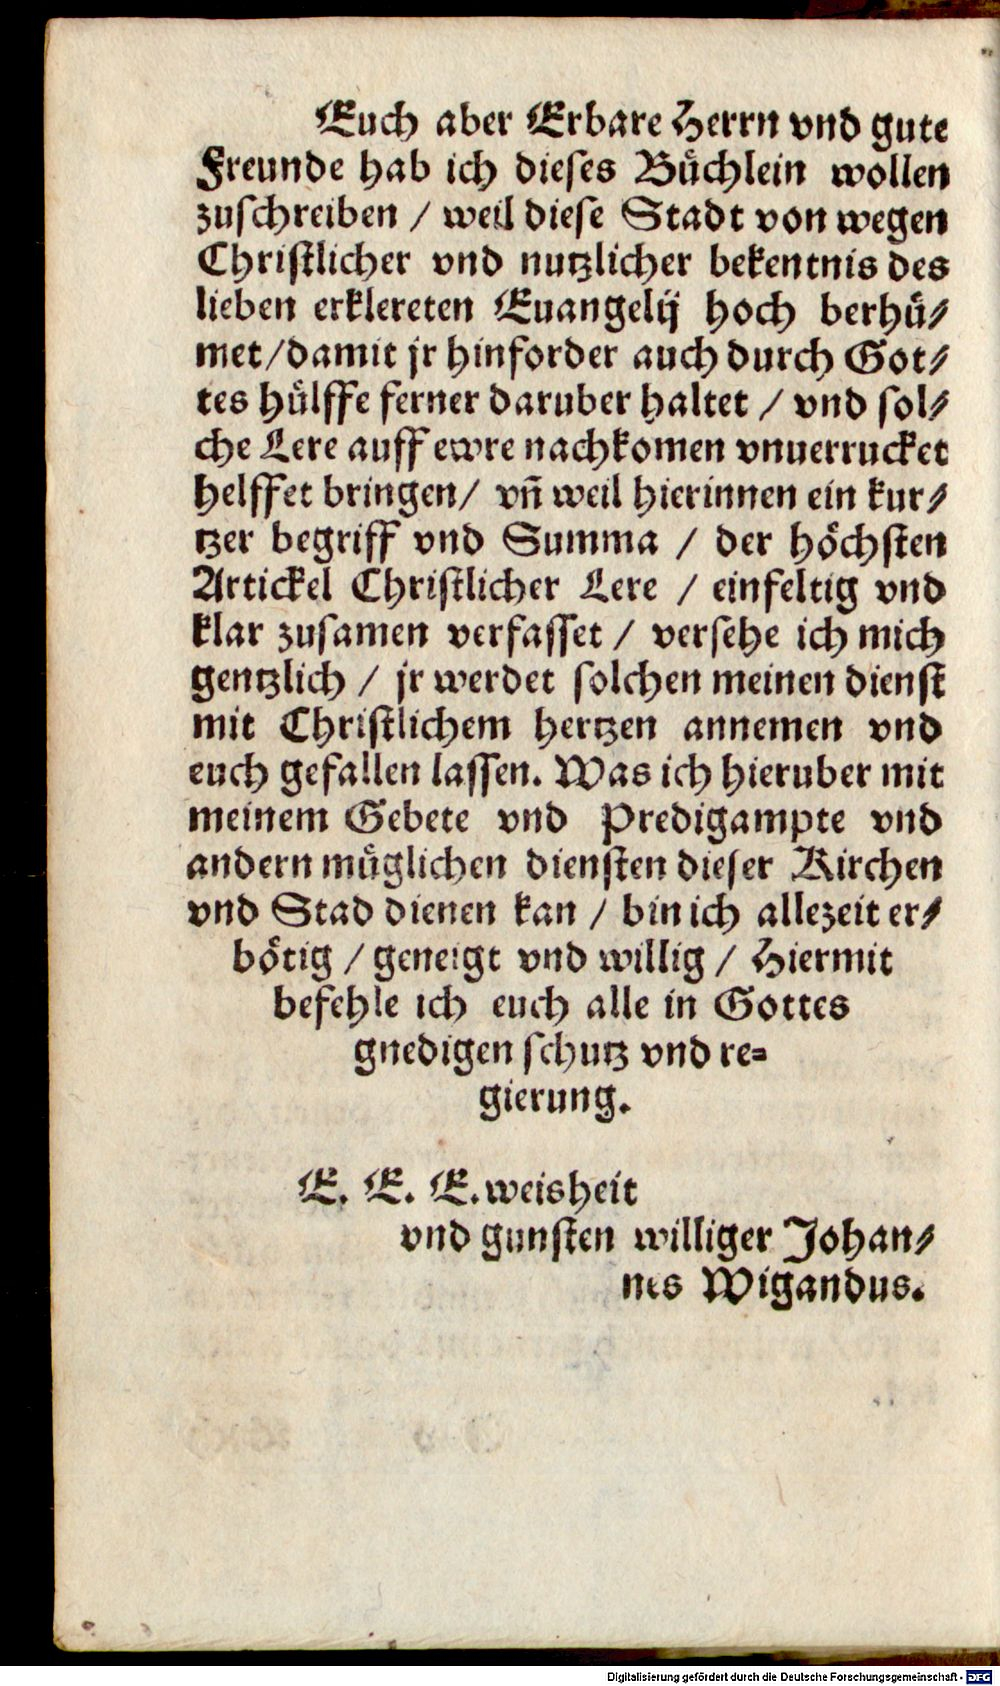 Euch aber Erbare Herrn vnd gute
Freunde hab ich dieses Buͤchlein wollen
zuschreiben / weil diese Stadt von wegen
Christlicher vnd nutzlicher bekentnis des
lieben erklereten Euangelij hoch berhuͤ⸗
met/damit jr hinforder auch durch Got⸗
tes huͤlffe ferner daruber haltet / vnd sol⸗
che Lere auff ewre nachkomen vnuerrucket
helffet bringen/ vn̄ weil hierinnen ein kur⸗
tzer begriff vnd Summa / der hoͤchsten
Artickel Christlicher Lere / einfeltig vnd
klar zusamen verfasset / versehe ich mich
gentzlich / jr werdet solchen meinen dienst
mit Christlichem hertzen annemen vnd
euch gefallen lassen. Was ich hieruber mit
meinem Gebete vnd Predigampte vnd
andern muͤglichen diensten dieser Kirchen
vnd Stad dienen kan / bin ich allezeit er⸗
boͤtig / geneigt vnd willig / Hiermit
befehle ich euch alle in Gottes
gnedigen schutz vnd re⸗
gierung.
E. E. E. weisheit
vnd gunsten williger Johan⸗
nes Wigandus.
Digitalisierung gefördert durch die Deutsche Forschungsgemeinschaft - DFG